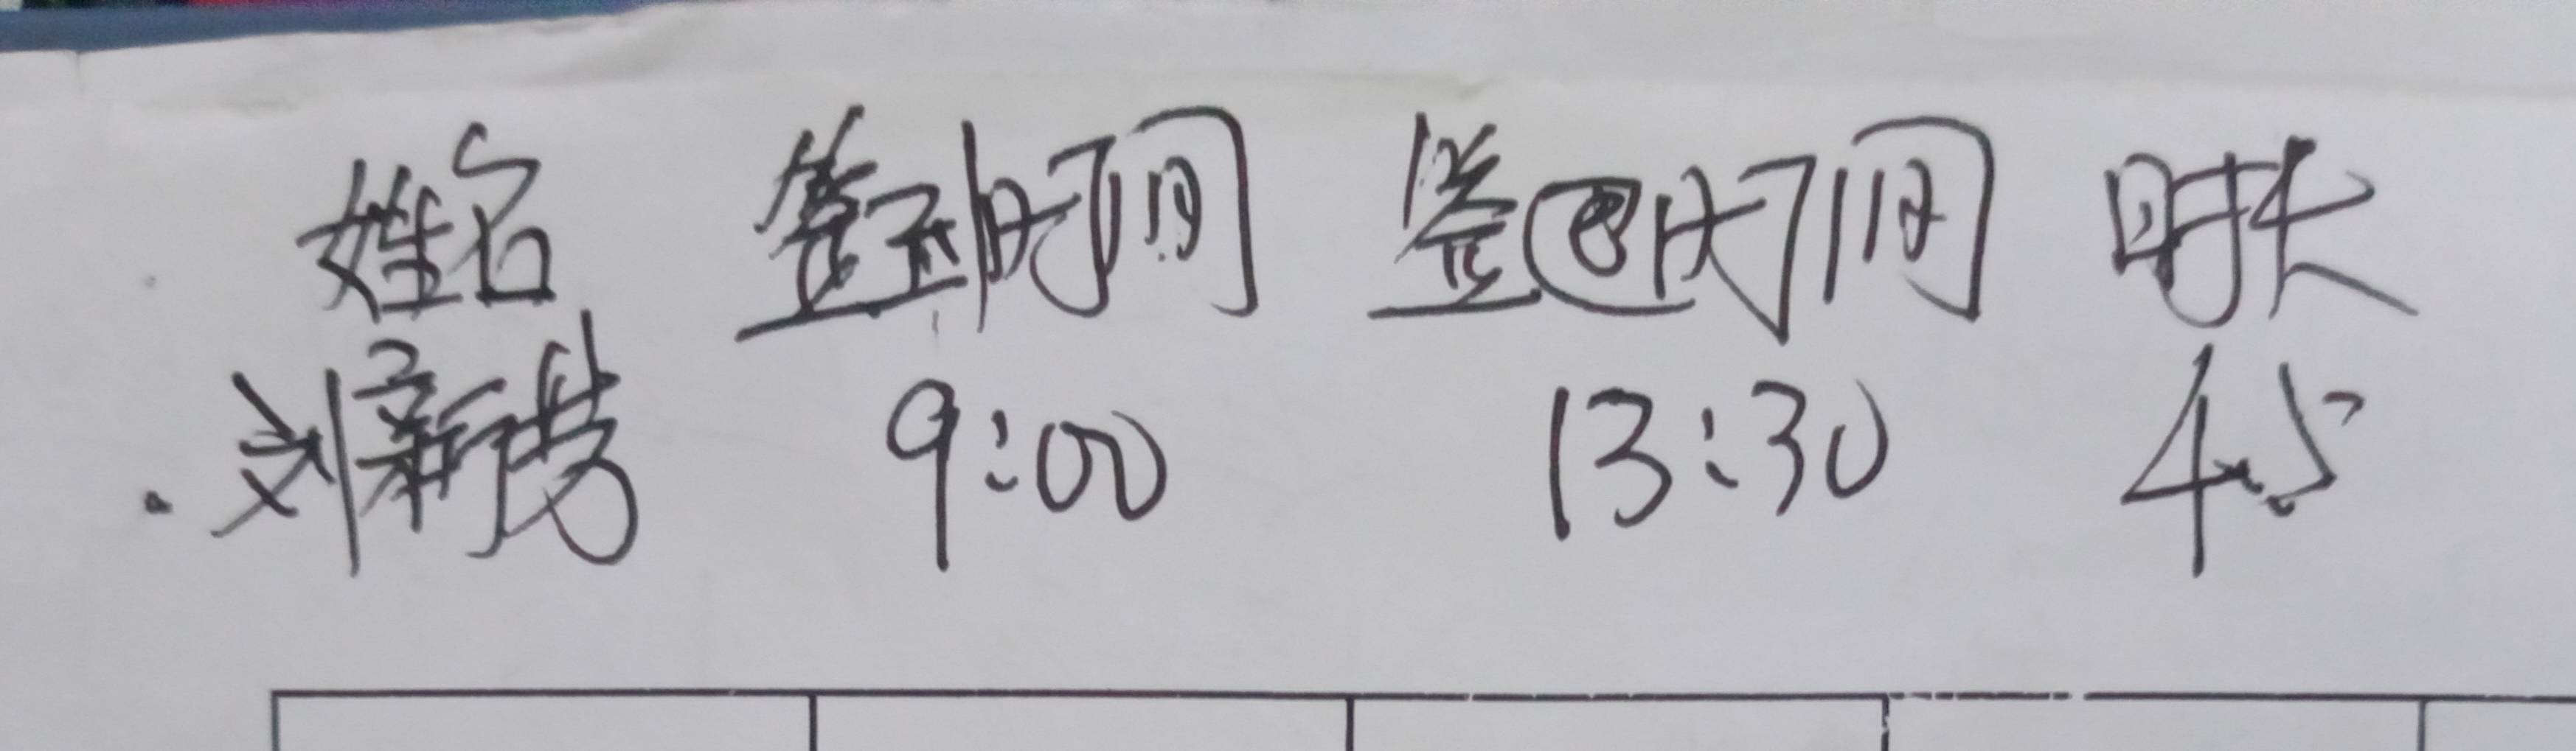 姓名 签到时间 签退时间 时长
刘新芳 9:00 13:30 4.5